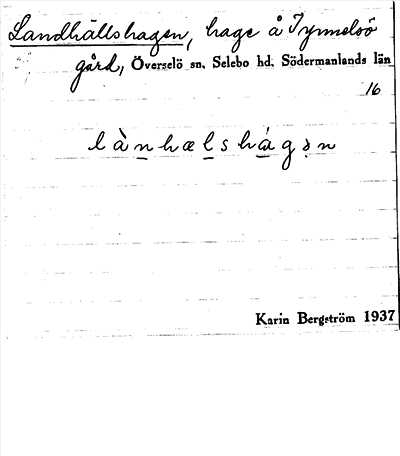 Landhällshagen, hage å Tynnelsö
gård, Överselö sn. Selebo hd. Södermanlands län
16
lànhælshágən
Karin Bergström 1937